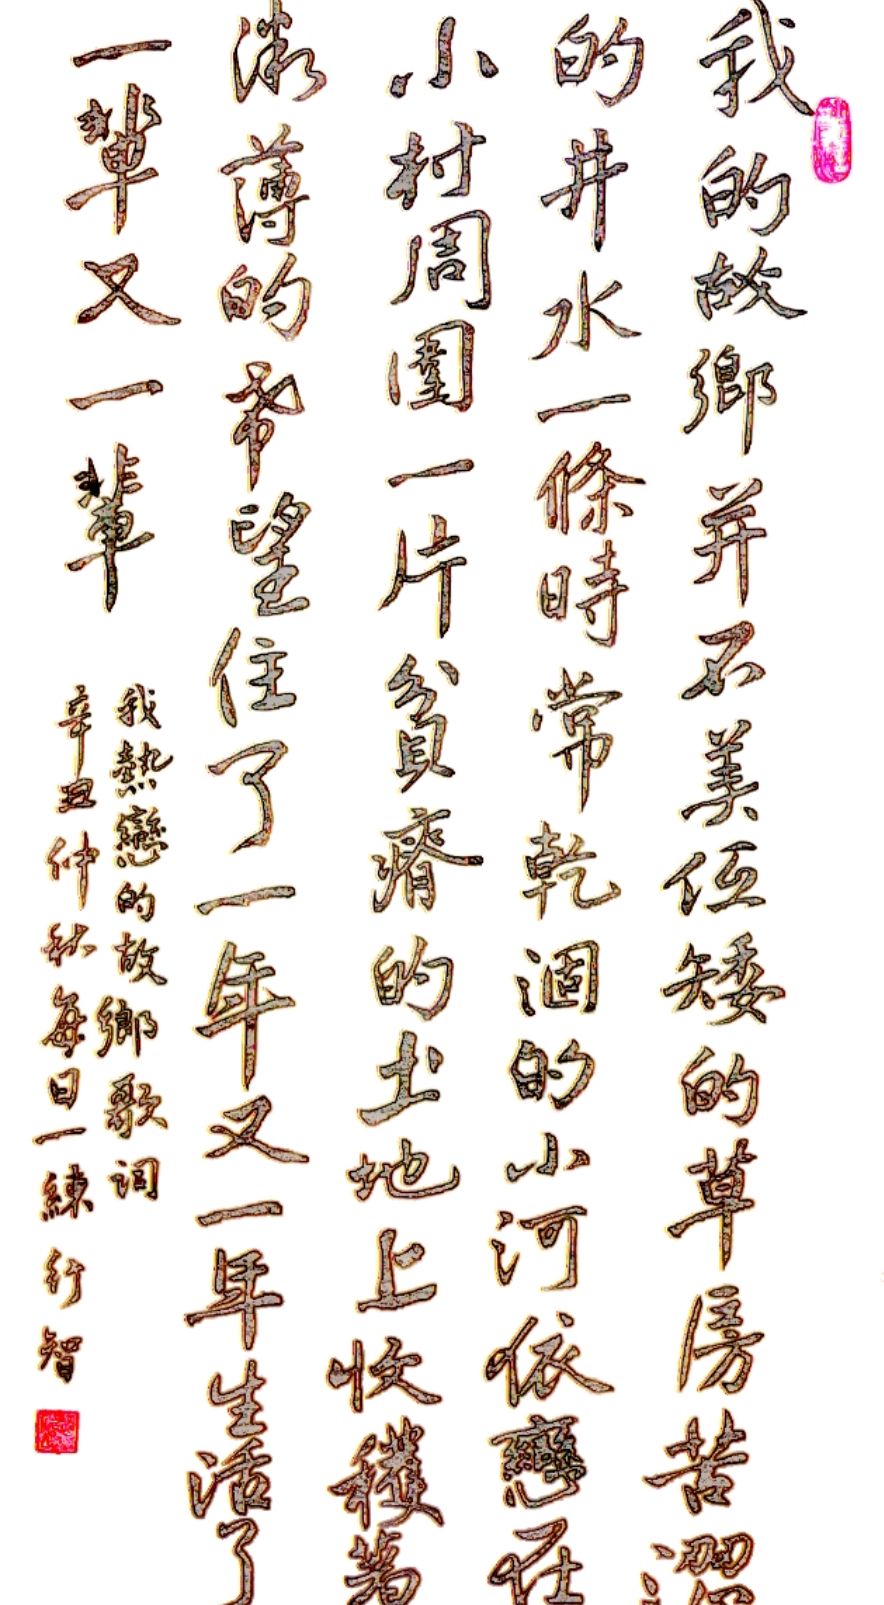 我的故鄉并不美低矮的草房苦澀
的井水一條時常乾涸的小河依戀在
小村周圍一片貧瘠的土地上收穫著
微薄的希望住了一年又一年生活了
一輩又一輩
我熱戀的故鄉歌詞
辛丑仲秋每日一練行智